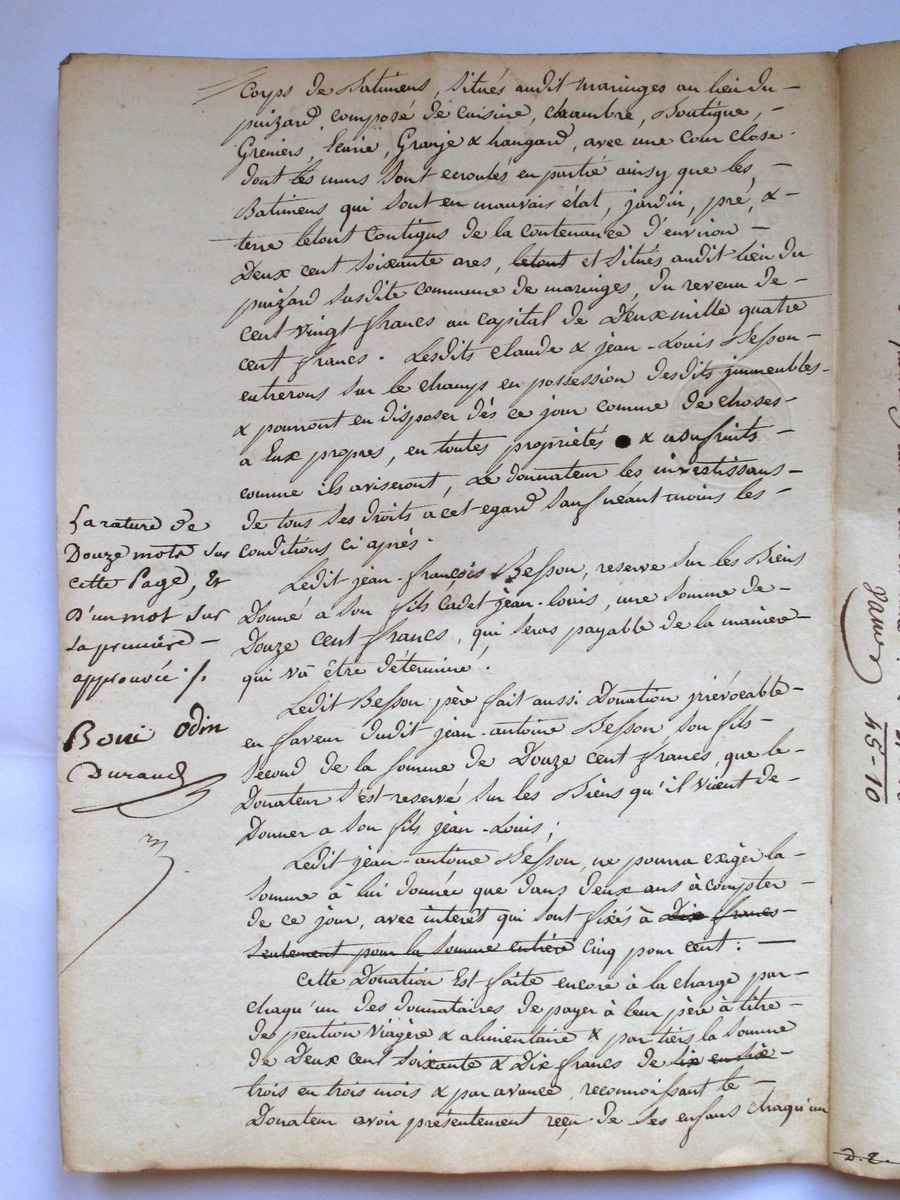 Corps de Batimens, situés audit maringes au lieu du
puizard, composé de cuisine, chambre, Boutique,
Greniers, Ecurie, Grange & hangard, avec une cour close
dont les murs sont ecroulés en partie ainsy que les
Batimens qui sont en mauvais état, jardin, pré, &
terre letout contigus de la contenance d'environ
Deux cent soixante ares, letout et situés audit lieu du
puizard susdite commune de maringes, du revenu de
cent vingt francs au capital de Deux mille quatre
cent francs. Lesdits claude & jean-Louis Besson
entrerons sur le champs en possession desdits jmmeubles
& pourront en disposer dès ce jour comme de choses
a Eux propres, en toutes propriétés & usufruits
comme ils aviseront, Le Donnateur les investissans
de tous ses droits a cet egard sauf néantmoins les
conditions ci après.
Ledit jean-françois Besson, reserve sur les Biens
Donné a son fils Cadet jean-louis, une somme de
Douze cent francs, qui seras payable de la maniere
qui va être déterminé.
Ledit Besson père fait aussi Donation irrévocable
en faveur dudit jean-antoine Besson son fils
second de la somme de Douze cent francs, que le
Donateur s'est reservé sur les Biens qu'il vient de
Donner a son fils jean-Louis;
Ledit jean-antoine Besson, ne pourra exiger la
somme à lui donnée que dans deux ans à compter
de ce jour, avec interêt qui sont fixés à Dix francs
seulement pour la somme entière Cinq pour cent:
Cette Donation Est faite encore à la charge par
chaqu'un des donnataires de payer à leur père à titre
de pention viagère & alimentaire & par tiers la somme
de Deux cent soixante & Dix francs de six en six
trois en trois mois & par avance, reconnoissant le
Donateur avoir présentement reçu de ses enfans chaqu'un
La rature de
Douze mots sur
cette Page, Et
D'un mot sur
la première
approuvée ./.
Boni Odin
Durand
45-10